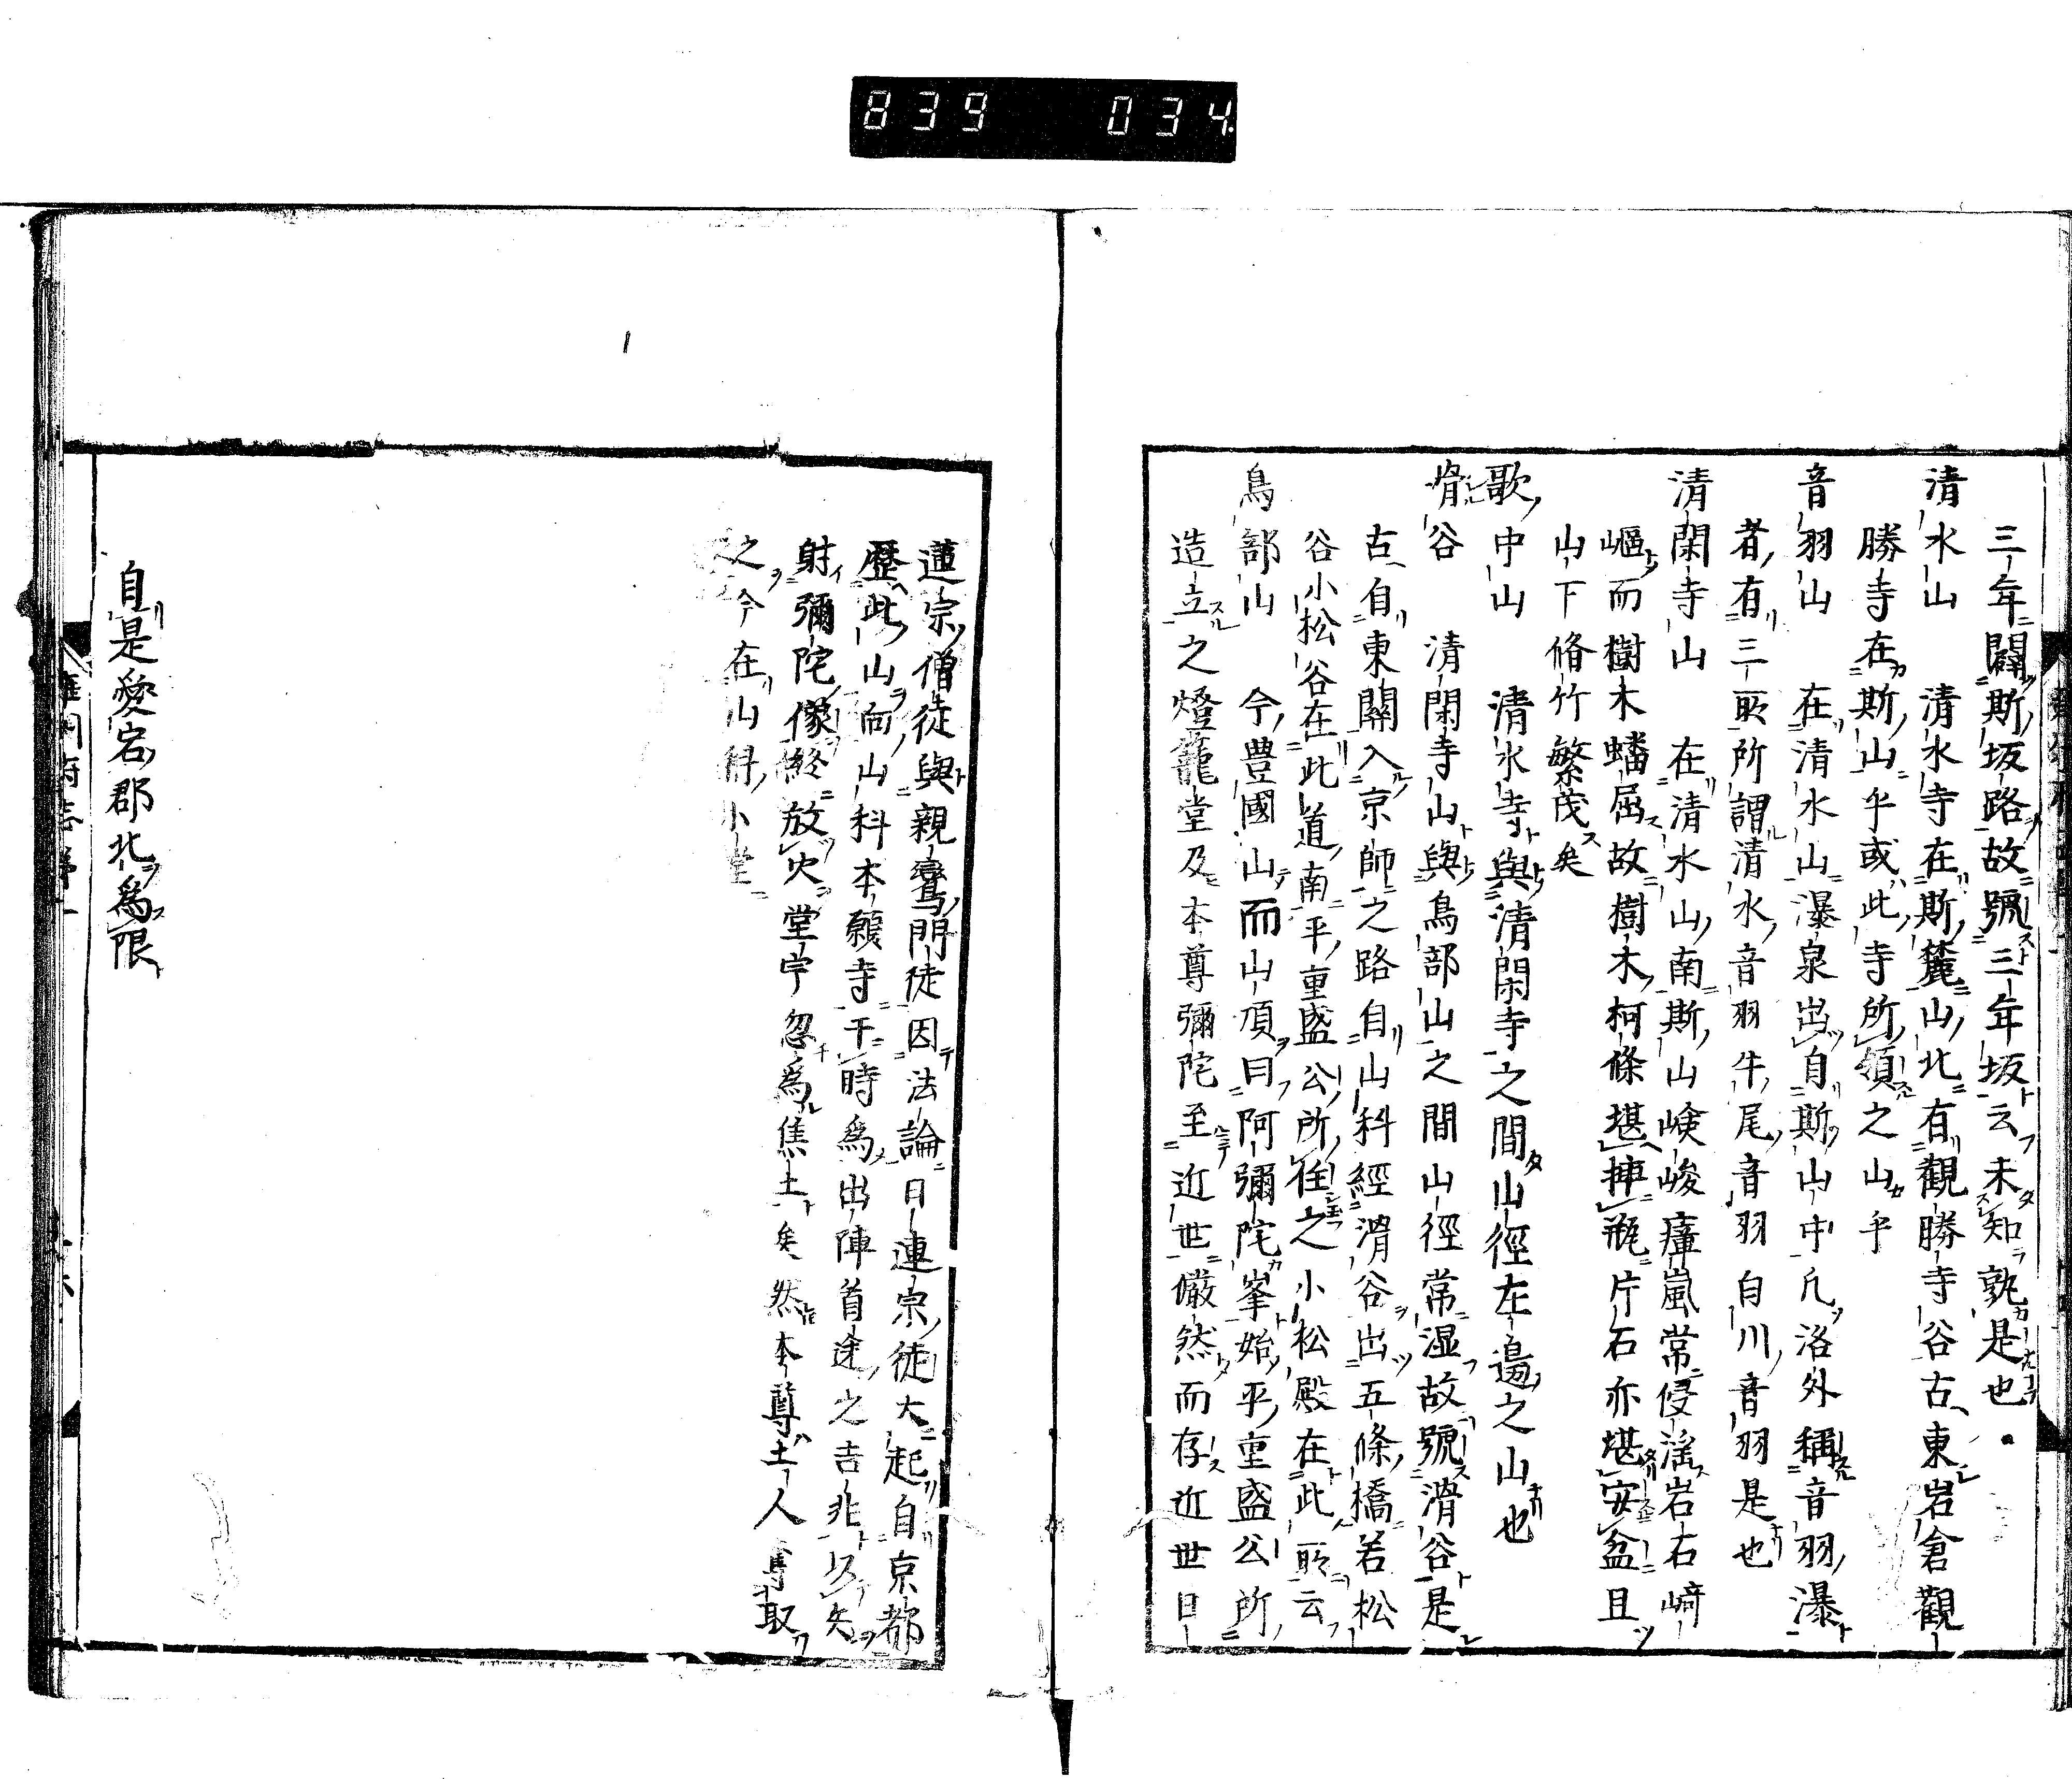 839 034
三年闢斯坂路故號三年坂云未知孰是也
清水山 清水寺在斯麓山北有觀勝寺谷古東岩倉觀
勝寺在斯山乎或此寺所領之山乎
音羽山 在清水山瀑泉出自斯山中凡洛外稱音羽瀑
者有三所所謂清水音羽牛尾音羽白川音羽是也
清閑寺山 在清水山南斯山嶮峻瘴嵐常侵滛岩石﨑
嶇而樹木蟠屈故樹木柯條堪挿瓶片石亦堪安盆且
山下脩竹繁茂矣
歌中山 清水寺與清閑寺之間山徑左邊之山也
滑谷 清閑寺山與鳥部山之間山徑常湿故號滑谷是
古自東關入京師之路自山科經滑谷出五條橋若松
谷小松谷在此道南平重盛公所住之小松殿在此所云
鳥部山 今豊國山而山頂曰阿彌陀峯始平重盛公所
造立之燈籠堂及本尊彌陀至近世儼然而存近世日
蓮宗僧徒與親鸞門徒因法論日連宗徒大起自京都
歷此山而山科本願寺于時爲出陣首途之吉兆以矢
射彌陀像終放火堂宇忽爲焦土矣然本尊土人奪取
之今在山科小堂
自是愛宕郡北爲限